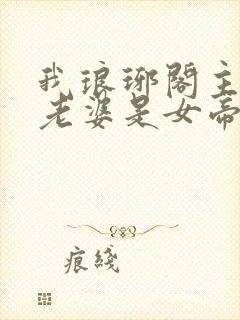 我琅琊閣主
老婆是女帝
痕綫